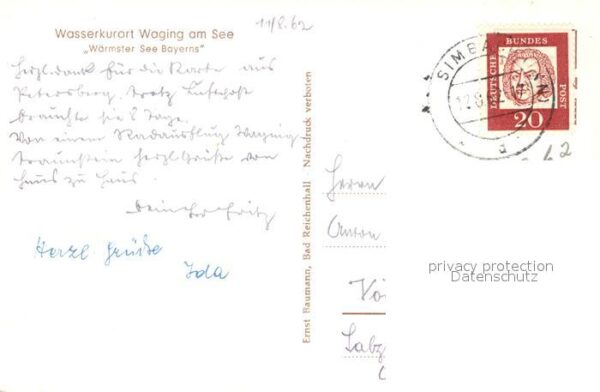 Wasserkurort Waging am See
„Wärmster See Bayerns"
11/8.62
Herzl. dank für die Karte aus
Petersberg, trotz Luftpost
brauchte sie 8 Tage.
Von einem Radausflug Waging
Traunstein herzl. Grüße von
Haus zu Haus.
Fritz
Herzl. Grüße
Ida
Ernst Baumann, Bad Reichenhall Nachdruck verboten
SIMBACH (INN)
12.8.
a
DEUTSCHE BUNDES POST
20
62
Herrn
Anton
Salz
privacy protection
Datenschutz